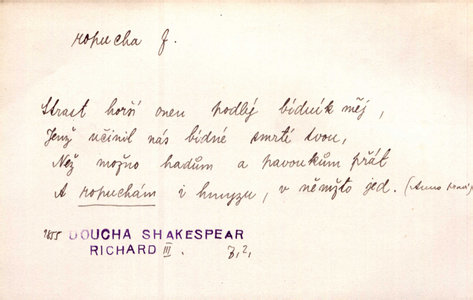 ropucha f.
Strast horší onen podlý bídník měj,
Jenž učinil nás bídné smrtí tvou,
Než možno hadům a pavoukům přát
A ropuchám i hmyzu, v němžto jed. (Anna praví)
1855 DOUCHA SHAKESPEAR
RICHARD III. I.2,